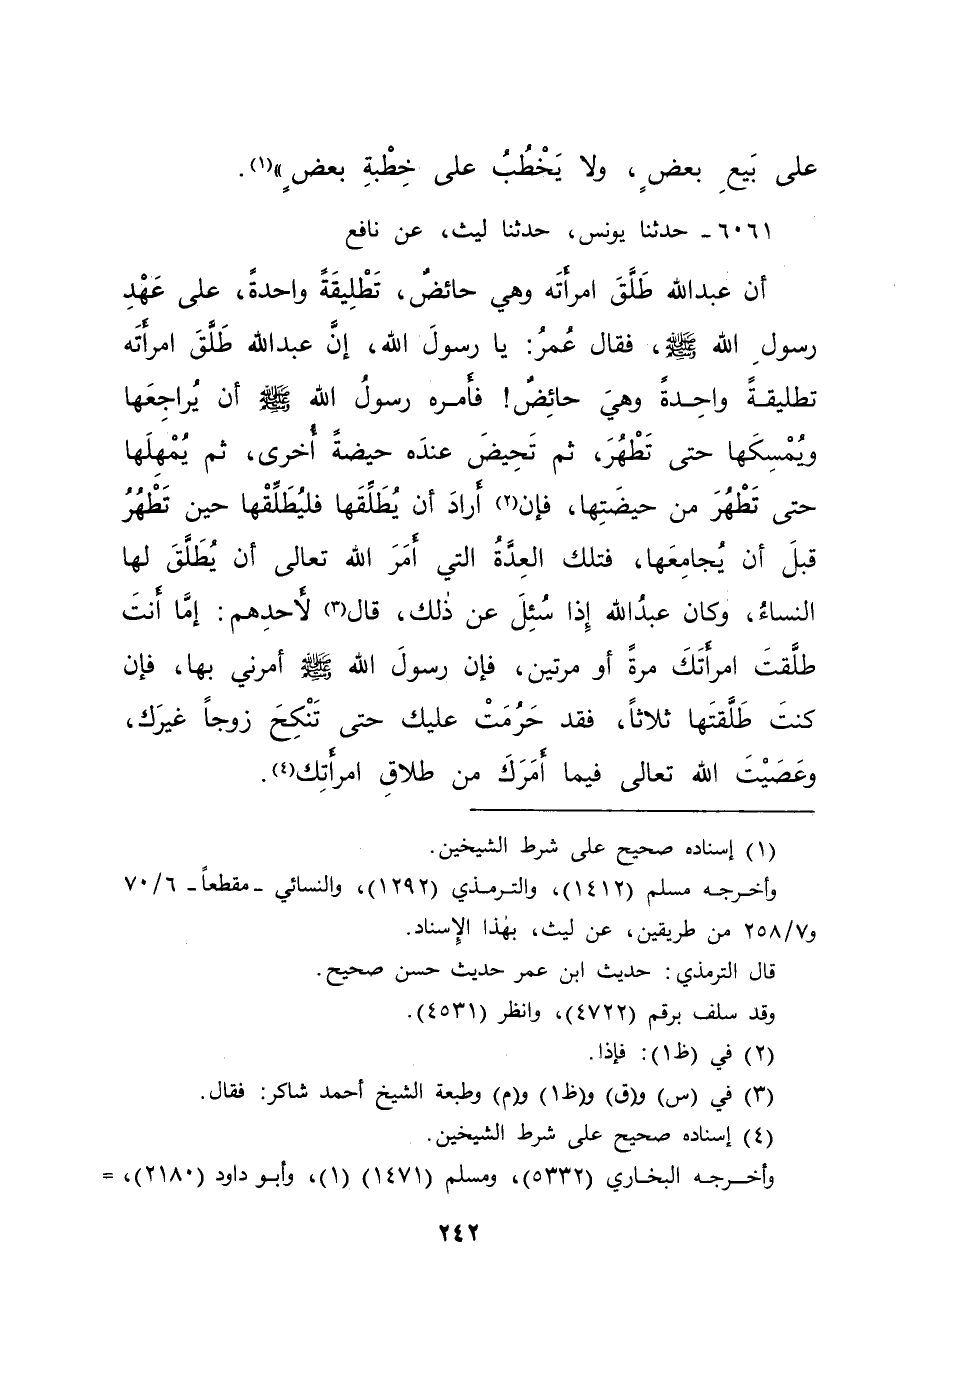 على بَيعِ بعضٍ، ولا يَخْطُبُ على خِطْبةِ بعضٍ»(١).
٦٠٦١ ـ حدثنا يونس، حدثنا ليث، عن نافع
أن عبدالله طَلَّقَ امرأَتَه وهي حائضٌ، تَطْلِيقَةً واحدةً، على عَهْدِ
رسولِ الله ﷺ، فقال عُمرُ: يا رسولَ الله، إنَّ عبدالله طَلَّقَ امرأَتَه
تطليقةً واحِدةً وهيَ حائِضٌ! فأَمره رسولُ الله ﷺ أن يُراجِعَها
ويُمْسِكَها حتى تَطْهُرَ، ثم تَحِيضَ عندَه حيضةً أُخرى، ثم يُمْهِلَها
حتى تَطْهُرَ من حيضَتِها، فإن(٢) أَرادَ أن يُطَلِّقَها فليُطَلِّقْها حين تَطْهُرُ
قبلَ أن يُجامِعَها، فتلك العِدَّةُ التي أَمَرَ الله تعالى أن يُطَلَّقَ لها
النساءُ، وكان عبدُالله إِذا سُئِلَ عن ذٰلك، قال(٣) لأَحدِهم: إمَّا أَنتَ
طلَّقتَ امرأَتَكَ مرةً أو مرتين، فإن رسولَ الله ﷺ أمرني بها، فإن
كنتَ طَلَّقتَها ثلاثاً، فقد حَرُمَتْ عليك حتى تَنْكِحَ زوجاً غيرَك،
وعَصَيْتَ الله تعالى فيما أَمَرَكَ من طلاقِ امرأَتِك(٤).
(١) إسناده صحيح على شرط الشيخين.
وأخرجه مسلم (١٤١٢)، والترمذي (١٢٩٢)، والنسائي ـ مقطعاً ـ ٧٠/٦
و٢٥٨/٧ من طريقين، عن ليث، بهٰذا الإِسناد.
قال الترمذي: حديث ابن عمر حديث حسن صحيح.
وقد سلف برقم (٤٧٢٢)، وانظر (٤٥٣١).
(٢) في (ظ١): فإذا.
(٣) في (س) و(ق) و(ظ١) و(م) وطبعة الشيخ أحمد شاكر: فقال.
(٤) إسناده صحيح على شرط الشيخين.
وأخرجه البخاري (٥٣٣٢)، ومسلم (١٤٧١) (١)، وأبو داود (٢١٨٠)، =
٢٤٢